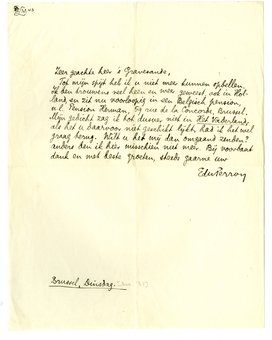 Zeer geachte heer 's Gravesande,
Tot mijn spijt heb ik U niet meer kunnen opbellen.
Ik ben trouwens veel heen en weer geweest, ook in Hol-
land, en zit nu voorloopig in een Belgisch pension,
n.l. Pension Herman, rue de la Concorde, Brussel.
Mijn gedicht zag ik tot dusver niet in Het Vaderland,
als het U daarvoor niet geschikt lijkt, had ik het wel
graag terug. Wilt U het mij dan omgaand zenden?
anders ben ik hier misschien niet meer. Bij voorbaat
dank en met beste groeten, steeds gaarne uw
EduPerron
Brussel, Dinsdag.